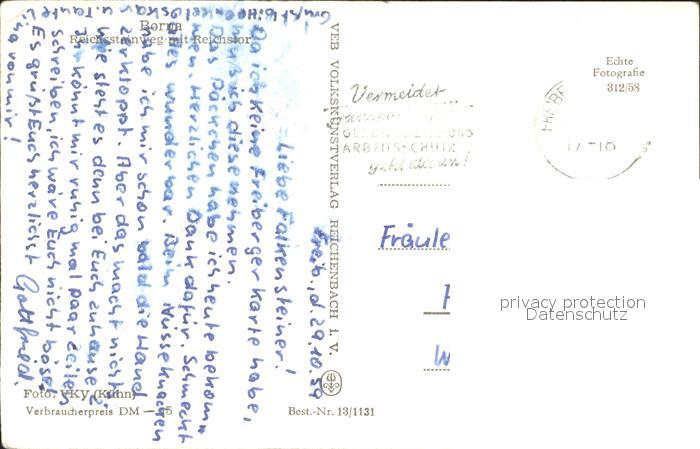 Borna
Reichsstraße mit Reichstor
Freib., d. 29.10.59
Liebe Falkensteiner!
Da ich keine Freiberger Karte habe,
muß ich diese nehmen.
Das Päckchen habe ich heute bekom-
men. Herzlichen Dank dafür. Schmeckt
alles wunderbar. Beim Nüsseknacken
habe ich mir schon bald die Hand
zerkloppt. Aber das macht nichts.
Wie steht es denn bei Euch zuhause?
Ihr könnt mir ruhig mal paar Zeilen
schreiben, ich wäre Euch nicht böse!
Es grüßt Euch herzlichst Gottfried.
von mir!
Foto: VKV (Kühn)
Verbraucherpreis DM —
Best.-Nr. 13/1131
VEB VOLKSKUNSTVERLAG REICHENBACH i. V.
Echte
Fotografie
312/58
Vermeidet
ARBEITSSCHUTZ
geht alle an!
17 -18
Fräule
privacy protection
Datenschutz